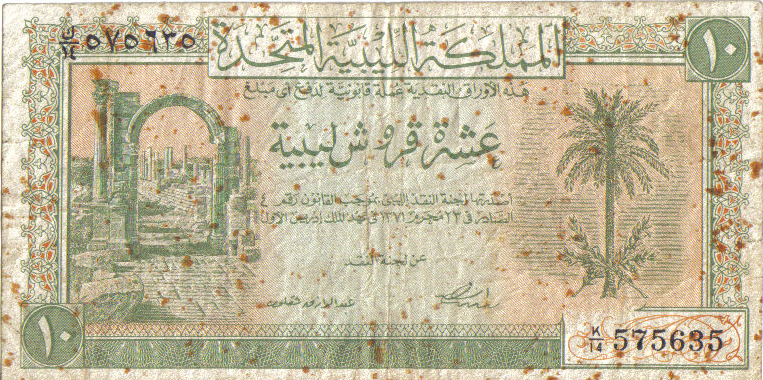 ك/١٤ ٥٧٥٦٣٥
١٠
المملكة الليبية المتحدة
هذه الأوراق النقدية عملة قانونية لدفع أي مبلغ
عشرة قروش ليبية
أصدرتها لجنة النقد الليبي بموجب القانون رقم ٤
الصادر في ٢٣ محرم ١٣٧١ في عهد الملك إدريس الأول
عن لجنة النقد
١٠
K/14 575635